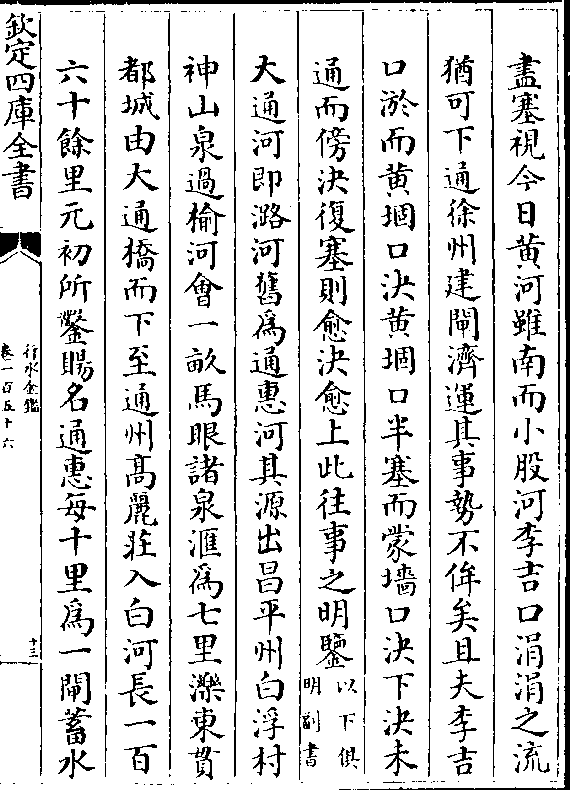 盡塞視今日黄河雖南而小股河李吉口涓涓之流
猶可下通徐州建閘濟運其事勢不侔矣且夫李吉
口淤而黄堌口決黄堌口半塞而蒙墻口決下決未
通而傍決復塞則愈決愈上此往事之明鑒以下俱
明副書
大通河即潞河舊為通惠河其源出昌平州白浮村
神山泉過榆河會一畝馬眼諸泉滙為七里濼東貫
都城由大通橋而下至通州髙麗莊入白河長一百
六十餘里元初所鑿賜名通惠每十里為一閘蓄水
欽定四庫全書
行水金鑑
卷一百五十六
十三